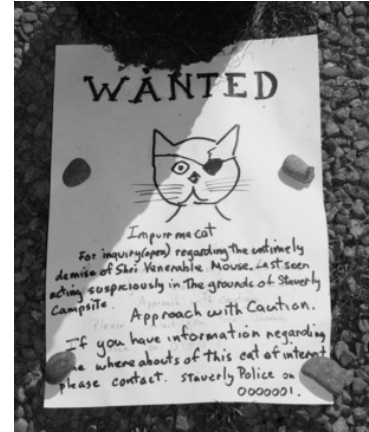 WANTED
Impurrmacat
For inquiry (open) regarding the untimely
demise of Shri Venerable Mouse. Last seen
acting suspiciously in the grounds of Staverly
Campsite.
Approach with Caution.
If you have information regarding
where abouts of this cat of interest
please contact. Staverly Police on
0000001.